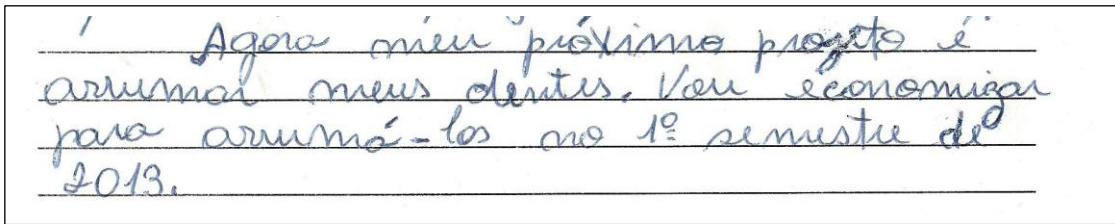 Agora meu próximo projeto é
arrumar meus dentes. Vou economizar
para arrumá-los no 1º semestre de
2013.